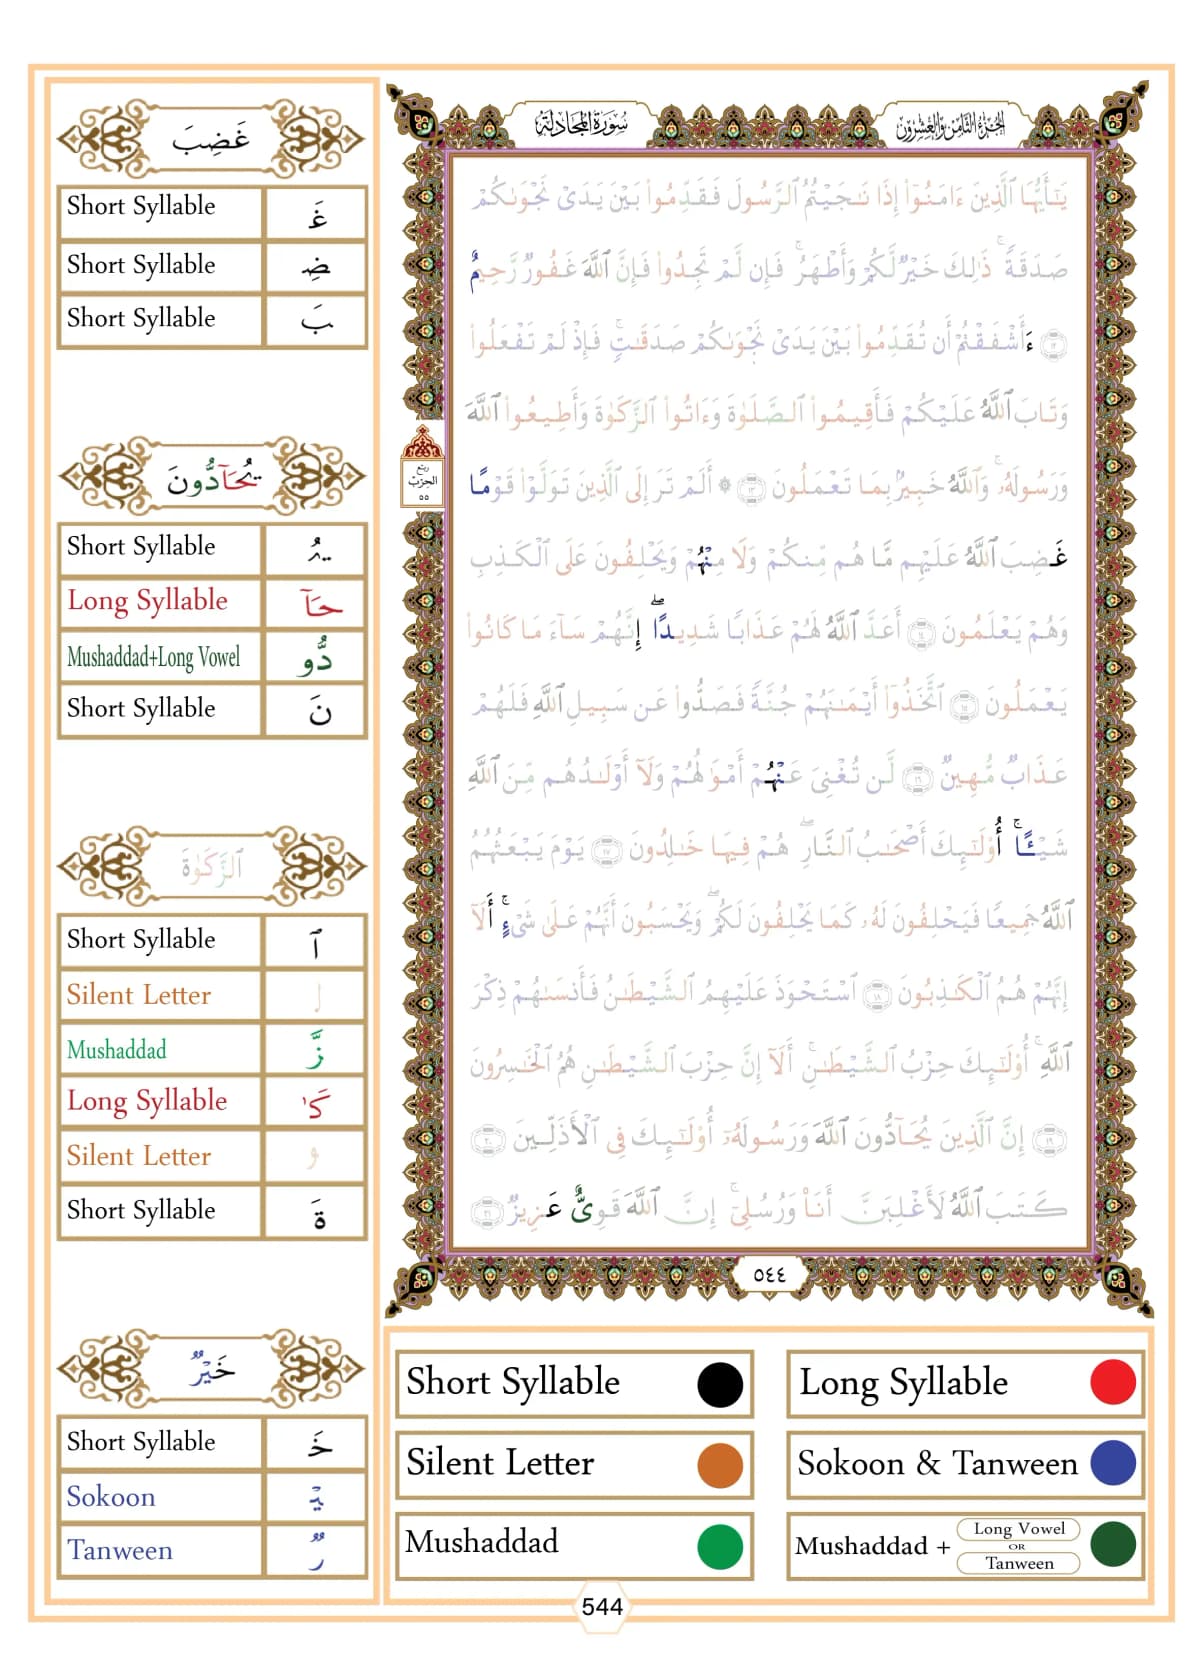 سُورَةُ المُجَادلَة
الجُزْءُ الثَّامِنُ وَالعِشْرُونَ
يَـٰٓأَيُّهَا ٱلَّذِينَ ءَامَنُوٓا۟ إِذَا نَـٰجَيْتُمُ ٱلرَّسُولَ فَقَدِّمُوا۟ بَيْنَ يَدَىْ نَجْوَىٰكُمْ
صَدَقَةً ۚ ذَٰلِكَ خَيْرٌ لَّكُمْ وَأَطْهَرُ ۚ فَإِن لَّمْ تَجِدُوا۟ فَإِنَّ ٱللَّهَ غَفُورٌ رَّحِيمٌ
١٢ ءَأَشْفَقْتُمْ أَن تُقَدِّمُوا۟ بَيْنَ يَدَىْ نَجْوَىٰكُمْ صَدَقَـٰتٍ ۚ فَإِذْ لَمْ تَفْعَلُوا۟
وَتَابَ ٱللَّهُ عَلَيْكُمْ فَأَقِيمُوا۟ ٱلصَّلَوٰةَ وَءَاتُوا۟ ٱلزَّكَوٰةَ وَأَطِيعُوا۟ ٱللَّهَ
وَرَسُولَهُۥ ۚ وَٱللَّهُ خَبِيرٌۢ بِمَا تَعْمَلُونَ ١٣ ۞ أَلَمْ تَرَ إِلَى ٱلَّذِينَ تَوَلَّوْا۟ قَوْمًا
غَضِبَ ٱللَّهُ عَلَيْهِم مَّا هُم مِّنكُمْ وَلَا مِنْهُمْ وَيَحْلِفُونَ عَلَى ٱلْكَذِبِ
وَهُمْ يَعْلَمُونَ ١٤ أَعَدَّ ٱللَّهُ لَهُمْ عَذَابًا شَدِيدًا ۖ إِنَّهُمْ سَآءَ مَا كَانُوا۟
يَعْمَلُونَ ١٥ ٱتَّخَذُوٓا۟ أَيْمَـٰنَهُمْ جُنَّةً فَصَدُّوا۟ عَن سَبِيلِ ٱللَّهِ فَلَهُمْ
عَذَابٌ مُّهِينٌ ١٦ لَّن تُغْنِىَ عَنْهُمْ أَمْوَٰلُهُمْ وَلَآ أَوْلَـٰدُهُم مِّنَ ٱللَّهِ
شَيْـًٔا ۚ أُو۟لَـٰٓئِكَ أَصْحَـٰبُ ٱلنَّارِ ۖ هُمْ فِيهَا خَـٰلِدُونَ ١٧ يَوْمَ يَبْعَثُهُمُ
ٱللَّهُ جَمِيعًا فَيَحْلِفُونَ لَهُۥ كَمَا يَحْلِفُونَ لَكُمْ ۖ وَيَحْسَبُونَ أَنَّهُمْ عَلَىٰ شَىْءٍ ۚ أَلَآ
إِنَّهُمْ هُمُ ٱلْكَـٰذِبُونَ ١٨ ٱسْتَحْوَذَ عَلَيْهِمُ ٱلشَّيْطَـٰنُ فَأَنسَىٰهُمْ ذِكْرَ
ٱللَّهِ ۚ أُو۟لَـٰٓئِكَ حِزْبُ ٱلشَّيْطَـٰنِ ۚ أَلَآ إِنَّ حِزْبَ ٱلشَّيْطَـٰنِ هُمُ ٱلْخَـٰسِرُونَ
١٩ إِنَّ ٱلَّذِينَ يُحَآدُّونَ ٱللَّهَ وَرَسُولَهُۥٓ أُو۟لَـٰٓئِكَ فِى ٱلْأَذَلِّينَ ٢٠
كَتَبَ ٱللَّهُ لَأَغْلِبَنَّ أَنَا۠ وَرُسُلِىٓ ۚ إِنَّ ٱللَّهَ قَوِىٌّ عَزِيزٌ ٢١
ربع
الحزب
٥٥
٥٤٤
غَضِبَ
Short Syllable غَـ
Short Syllable ـضِـ
Short Syllable ـبَ
يُحَآدُّونَ
Short Syllable يُـ
Long Syllable حَآ
Mushaddad+Long Vowel دُّو
Short Syllable نَ
ٱلزَّكَوٰةَ
Short Syllable ٱ
Silent Letter ل
Mushaddad زَّ
Long Syllable كَـٰ
Silent Letter و
Short Syllable ةَ
خَيْرٌ
Short Syllable خَـ
Sokoon ـيْـ
Tanween رٌ
Short Syllable
Long Syllable
Silent Letter
Sokoon & Tanween
Mushaddad
Mushaddad + Long Vowel OR Tanween
544